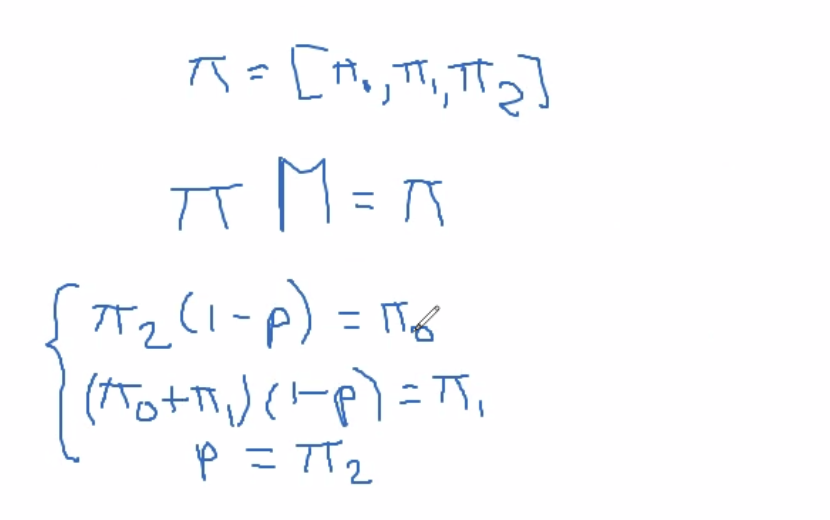 π = [π₀, π₁, π₂]
π M = π
π₂(1-p) = π₀
(π₀+π₁)(1-p) = π₁
p = π₂